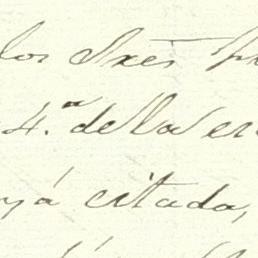 los Sres
4.ª de la es
yá citada,